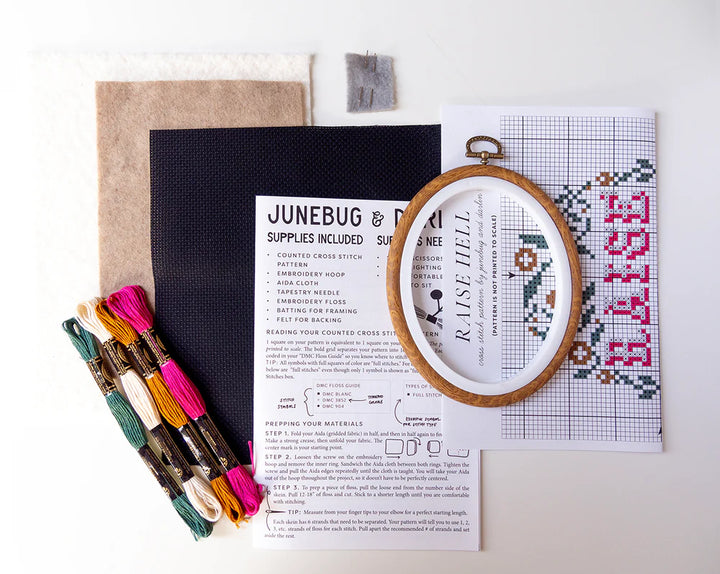 JUNEBUG &
SUPPLIES INCLUDED
• COUNTED CROSS STITCH
PATTERN
• EMBROIDERY HOOP
• AIDA CLOTH
• TAPESTRY NEEDLE
• EMBROIDERY FLOSS
• BATTING FOR FRAMING
• FELT FOR BACKING
TO SIT
READING YOUR COUNTED CROSS
1 square on your pattern is equivalent to 1 square
printed to scale. The bold grid separates your pattern into
coded in your "DMC Floss Guide" so you know where to stitch
TIP: All squares with full squares of color are "full stitches."
below are "full stitches" even though only 1 symbol is shown as
Stitches box.
STITCH
SYMBOLS
DMC FLOSS GUIDE
• DMC BLANC
• DMC 3852
• DMC 904
THREAD
COLORS
TYPES OF
• FULL STITCH
EXAMPLE SYMBOLS
FOR STITCH TYPE
PREPPING YOUR MATERIALS
STEP 1. Fold your Aida (gridded fabric) in half, and then in half again to find
Make a strong crease, then unfold your fabric. The
center mark is your starting point.
STEP 2. Loosen the screw on the embroidery
hoop and remove the inner ring. Sandwich the Aida cloth between both rings. Tighten the
screw and pull the Aida edges repeatedly until the cloth is taught. You will take your Aida
out of the hoop throughout the project, so it doesn't have to be perfectly centered.
STEP 3. To prep a piece of floss, pull the loose end from the number side of the
skein. Pull 12-18" of floss and cut. Stick to a shorter length until you are comfortable
with stitching.
TIP: Measure from your finger tips to your elbow for a perfect starting length.
Each skein has 6 strands that need to be separated. Your pattern will tell you to use 1, 2,
3, etc. strands of floss for each stitch. Pull apart the recommended # of strands and set
aside the rest.
RAISE HELL
cross stitch pattern by junebug and darlin
(PATTERN IS NOT PRINTED TO SCALE)
RAISE